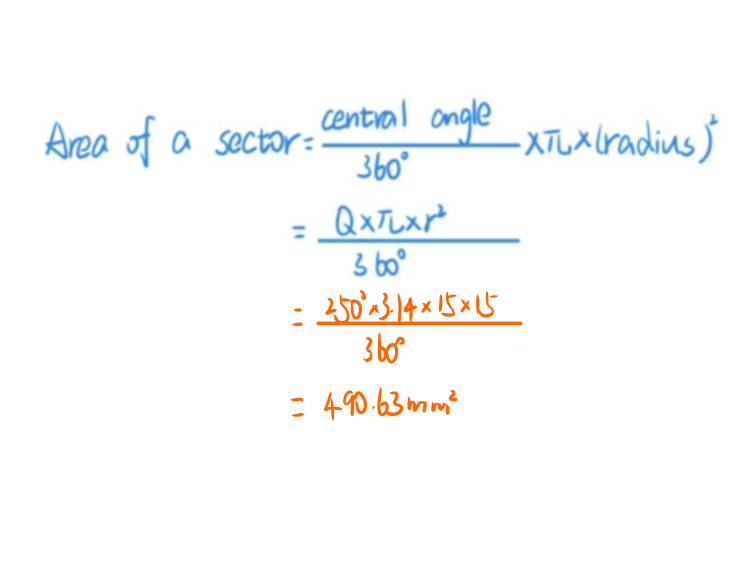 Area of a sector = central angle / 360° × π × (radius)²
= Q × π × r² / 360°
= 250° × 3.14 × 15 × 15 / 360°
= 490.63 mm²